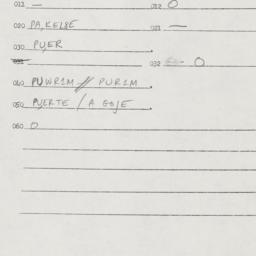 011 — 012 O
020 PA,KEL8E 021 —
030 PU,ER
031 032 O
040 PUWR1M // PUR1M
050 PU,ERTE / A GOJE
060 O